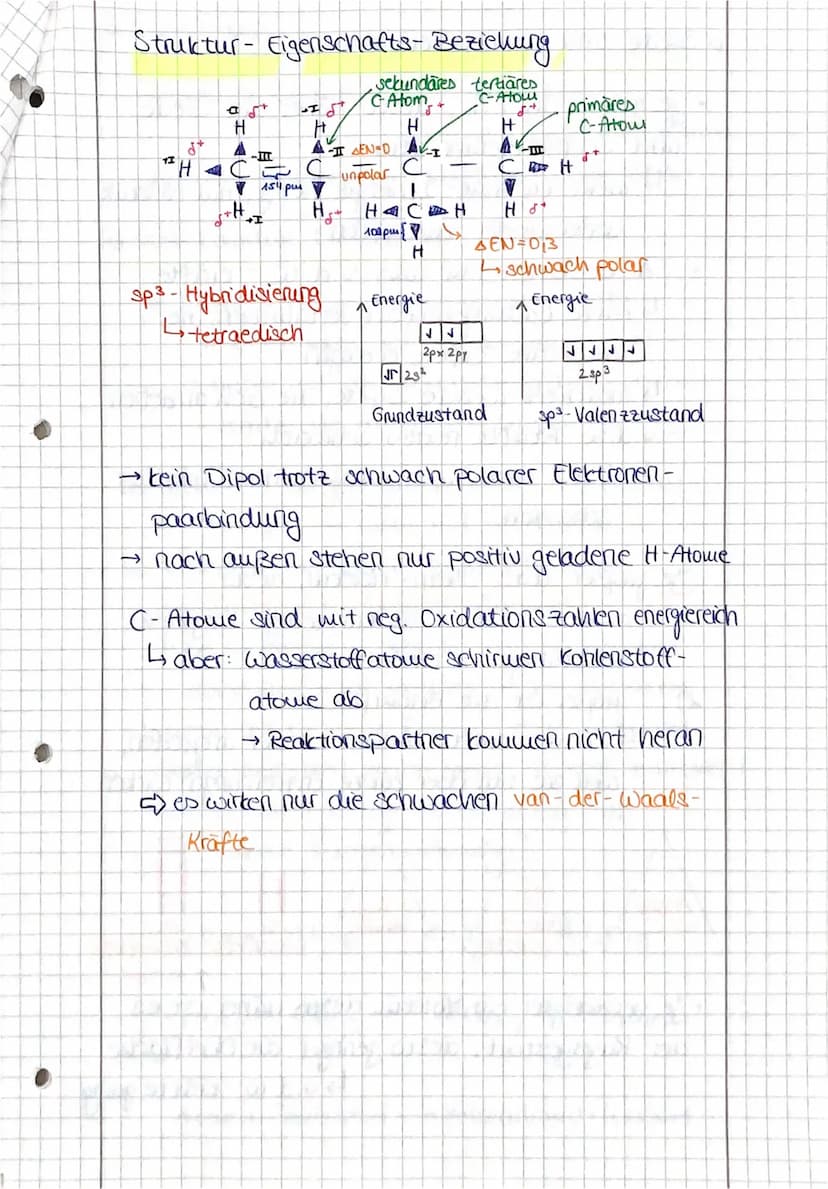 Struktur- Eigenschafts- Beziehung
sekundäres tertiäres
C-Atom C-Atom
primäres
C-Atom
+I δ+ +I δ+ δ+ δ+
H H H H
δ+ -III -II ΔEN=0 -I -III δ+
+I H C C unpolar C C H
154 pm
δ+ H +I H δ+ H C H H δ+
108pm
H
ΔEN=0,3
↳ schwach polar
sp³- Hybridisierung
↳ tetraedisch
Energie Energie
2px 2py
2s²
2sp³
Grundzustand sp³-Valenzzustand
→ kein Dipol trotz schwach polarer Elektronen-
paarbindung
→ nach außen stehen nur positiv geladene H-Atome
C-Atome sind mit neg. Oxidationszahlen energiereich
↳ aber: Wasserstoffatome schirmen Kohlenstoff-
atome ab
→ Reaktionspartner kommen nicht heran
⇨ es wirken nur die schwachen van-der-Waals-
Kräfte